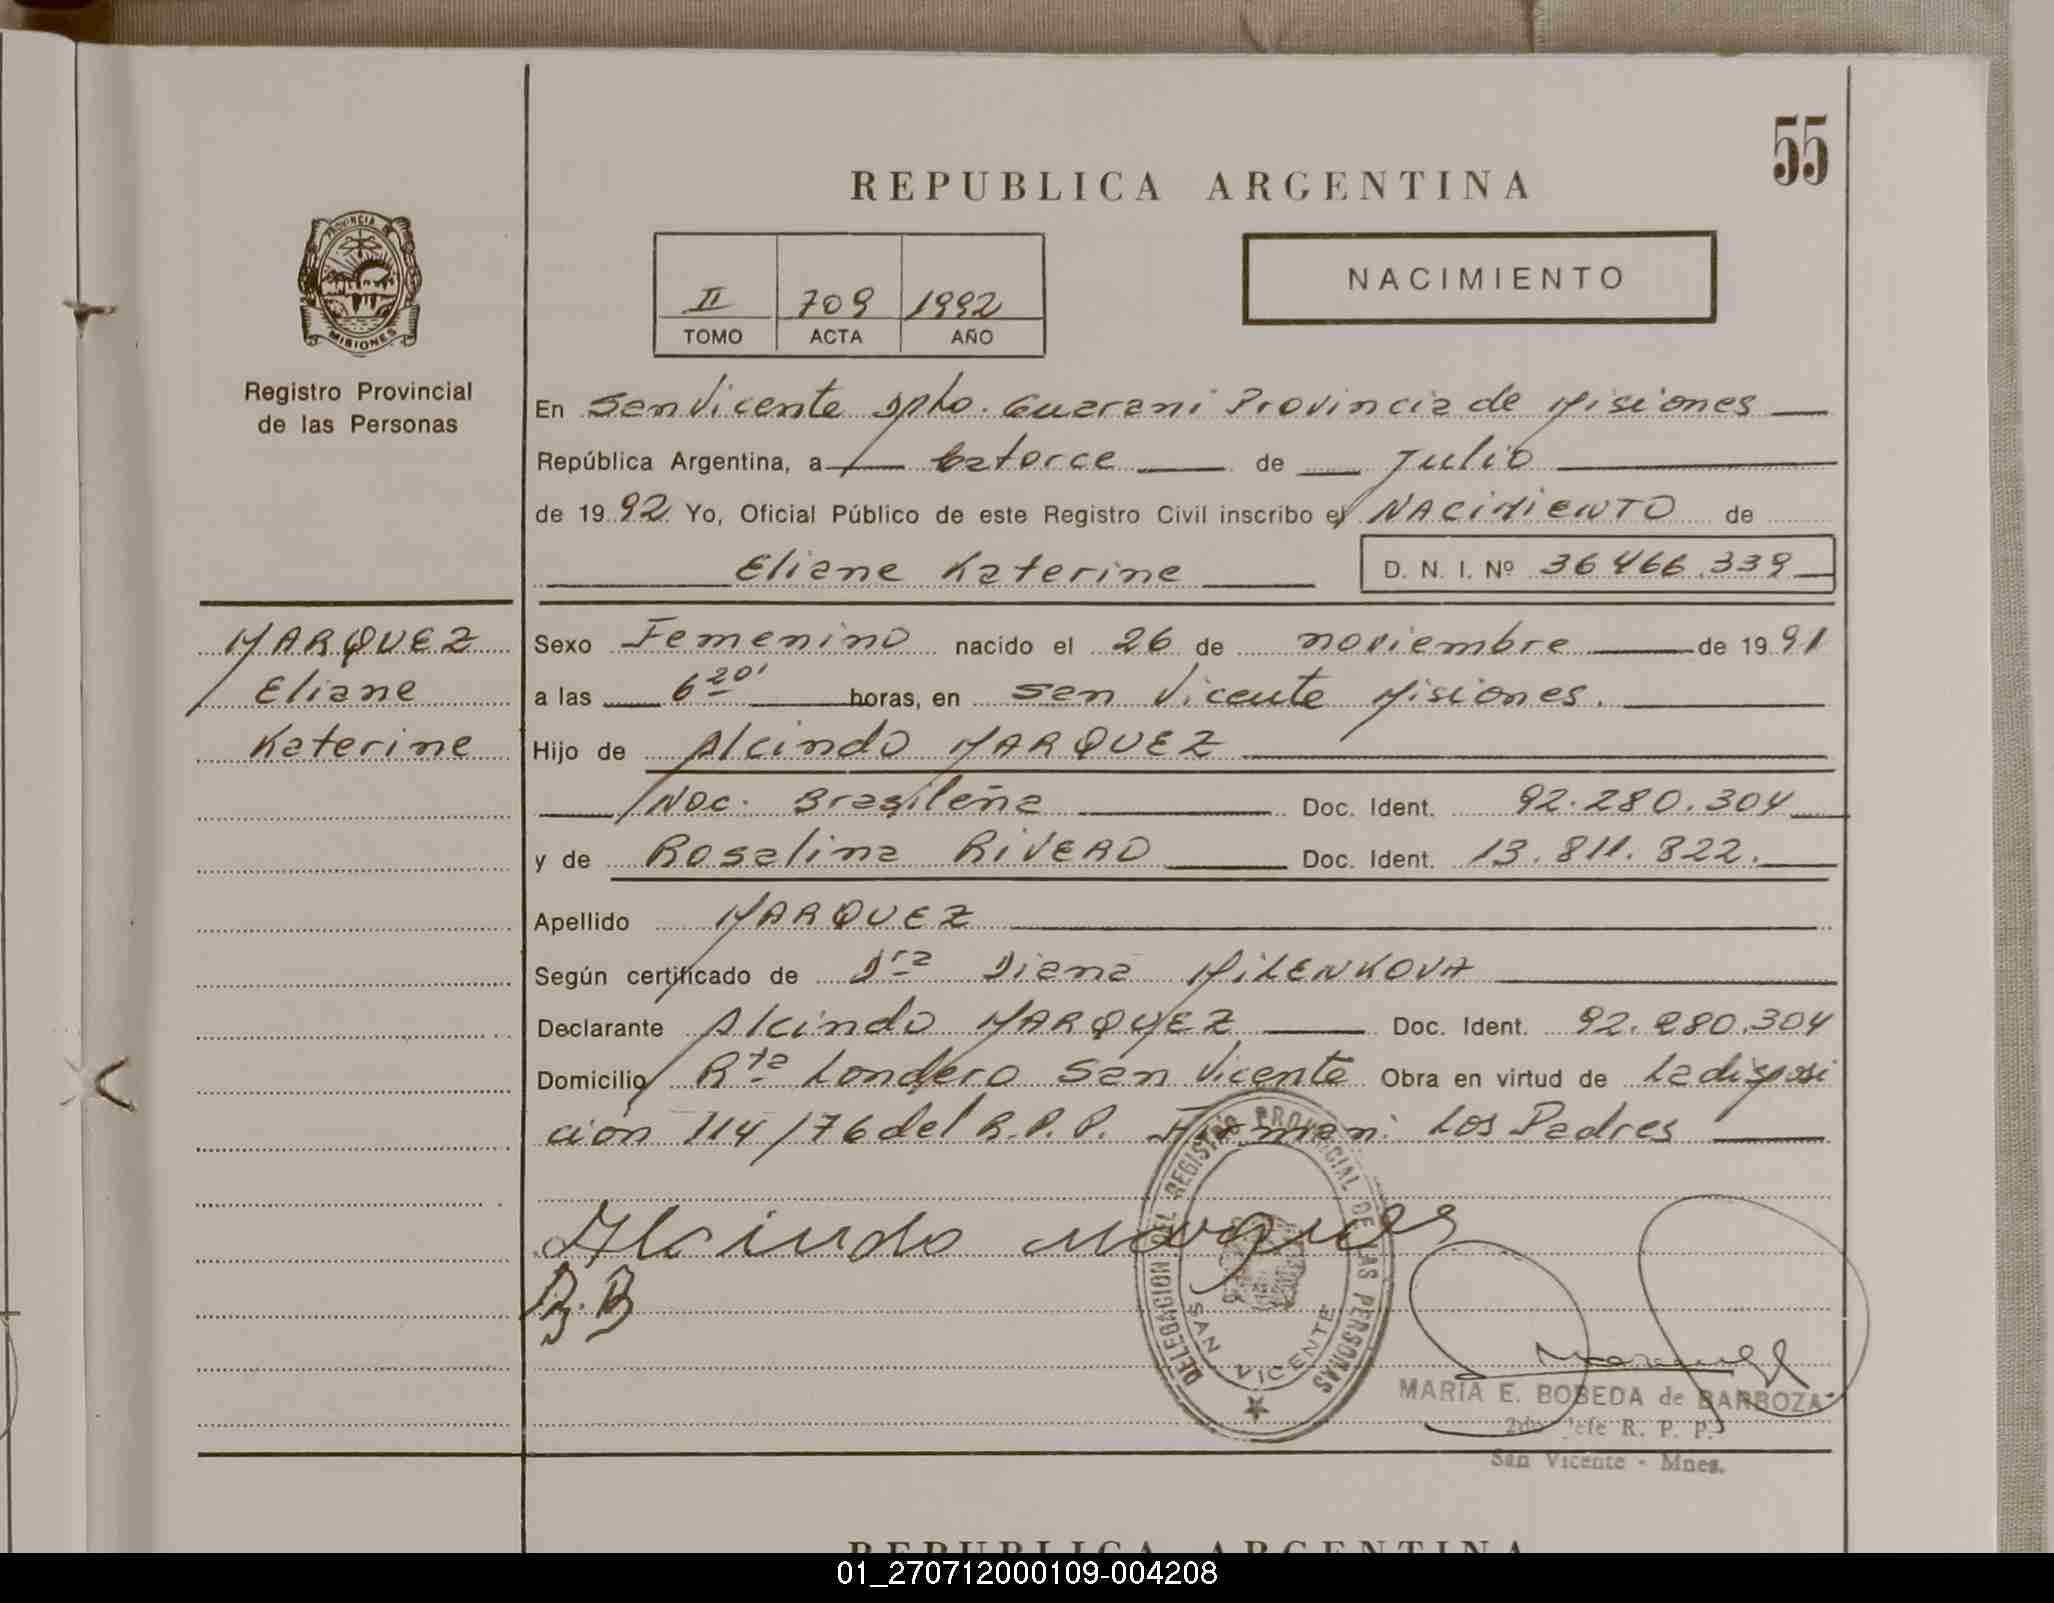 55
REPUBLICA ARGENTINA
NACIMIENTO
II 709 1992
TOMO ACTA AÑO
PROVINCIA DE MISIONES
Registro Provincial
de las Personas
En San Vicente Dpto. Guarani Provincia de Misiones
República Argentina, a Catorce de Julio
de 1992 Yo, Oficial Público de este Registro Civil inscribo el NACIMIENTO de
Eliane Katerine D. N. I. Nº 36466.339
MARQUEZ
Eliane
Katerine
Sexo Femenino nacido el 26 de noviembre de 1991
a las 6 20' horas, en San Vicente Misiones.
Hijo de Alcindo MARQUEZ
Nac. Brasileña Doc. Ident. 92.280.304
y de Rosalina RIVERO Doc. Ident. 13.811.822.
Apellido MARQUEZ
Según certificado de Dra Diana MILENKOVA
Declarante Alcindo MARQUEZ Doc. Ident. 92.280.304
Domicilio Rta Londero San Vicente Obra en virtud de La disposi
ción 114/76 del R.P.P. Firman: Los Padres
Alcindo marques
DELEGACION DEL REGISTRO PROVINCIAL DE LAS PERSONAS
SAN VICENTE
MARIA E. BOBEDA de BARBOZA
2do Jefe R. P. P.
San Vicente - Mnes.
REPUBLICA ARGENTINA
01_270712000109-004208